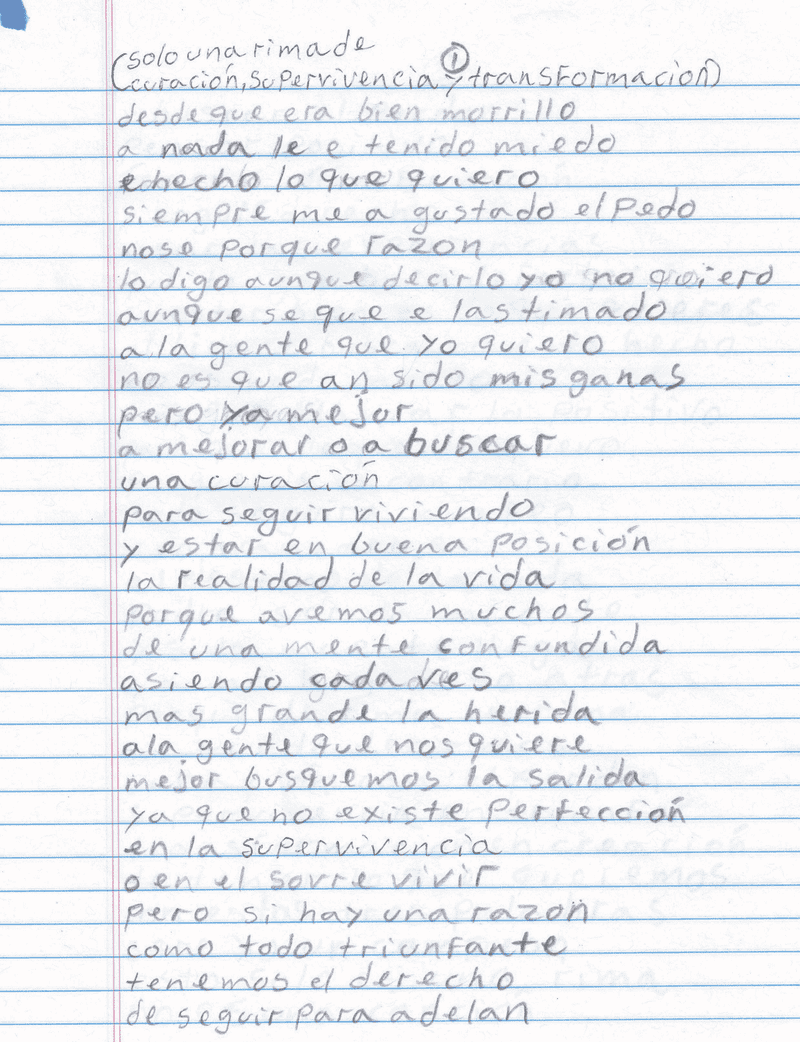 (solo una rima de
①
curación, supervivencia y transformación)
desde que era bien morrillo
a nada le e tenido miedo
echecho lo que quiero
siempre me a gustado el pedo
nose porque razon
lo digo aunque decirlo yo no quiero
aunque se que e lastimado
a la gente que yo quiero
no es que an sido mis ganas
pero ya mejor
a mejorar o a buscar
una curación
para seguir viviendo
y estar en buena posición
la realidad de la vida
porque avemos muchos
de una mente confundida
asiendo cada ves
mas grande la herida
ala gente que nos quiere
mejor busquemos la salida
ya que no existe perfección
en la supervivencia
o en el sovre vivir
pero si hay una razon
como todo triunfante
tenemos el derecho
de seguir para adelan